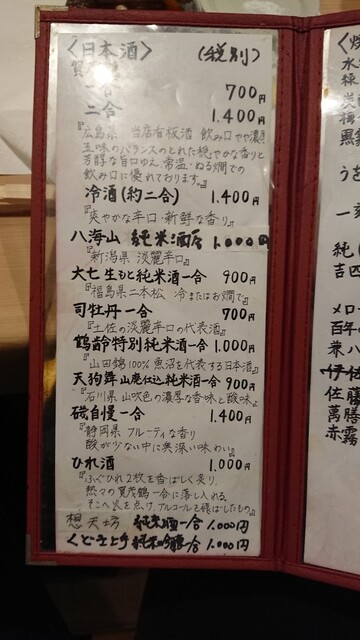 〈日本酒〉 (税別)
賀茂鶴
一合 700円
二合 1.400円
『広島県 当店看板酒 飲み口やや濃
五味のバランスのとれた穏やかな香りと
芳醇な旨口ゆえ、常温・ぬる燗での
飲み口に優れております。』
冷酒(約二合) 1.400円
『爽やかな辛口・新鮮な香り』
八海山 純米酒 1.000円
『新潟県 淡麗辛口』
大七 生もと純米酒一合 900円
『福島県二本松 冷またはお燗で』
司牡丹一合 700円
『土佐の淡麗辛口の代表酒』
鶴齢特別純米酒一合 1.000円
『山田錦100% 魚沼を代表する日本酒』
天狗舞 山廃仕込純米酒一合 900円
『石川県 山吹色の濃厚な香味と酸味』
磯自慢一合 1.400円
『静岡県 フルーティな香り
酸が少ない中に奥深い味わい』
ひれ酒 1.000円
『ふぐひれ2枚を香ばしく炙り、
熱々の賀茂鶴一合に落し入れる。
そこへ火を点け、アルコールを飛ばしたもの』
想天坊 純米酒一合 1.000円
くどき上手 純米吟醸一合 1.000円
百年の
佐藤
萬膳
赤霧